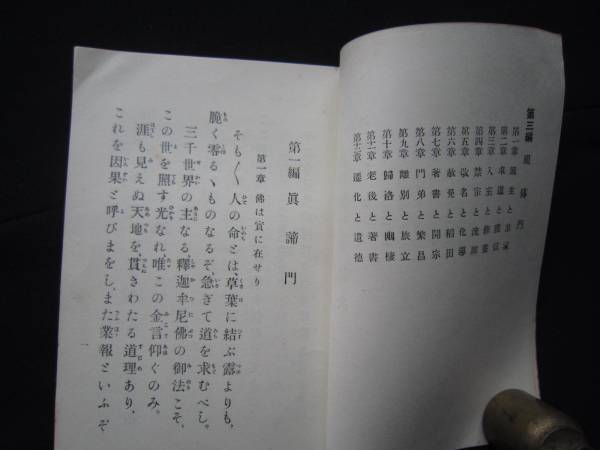 第三編
門
第一章 誕生と出家
第二章 求道と
第三章 入室と修養
第四章 禁宗と流謫
第五章 改名と化導
第六章 赦免と稲田
第七章 著書と開宗
第八章 門弟と繁昌
第九章 離別と旅立
第十章 歸洛と幽棲
第十一章 老後と著書
第十二章 遷化と遺徳
第一編 眞諦門
第一章 佛は實に在せり
そも〳〵人の命とは、草葉に結ぶ露よりも、
脆く零るゝものなるぞ、急ぎて道を求むべし。
三千世界の主なる、釋迦牟尼佛の御法こそ、
この世を照す光なれ、唯この金言仰ぐのみ。
涯も見えぬ天地を、貫きわたる道理あり、
これを因果と呼びまをし、また業報といふぞ
一